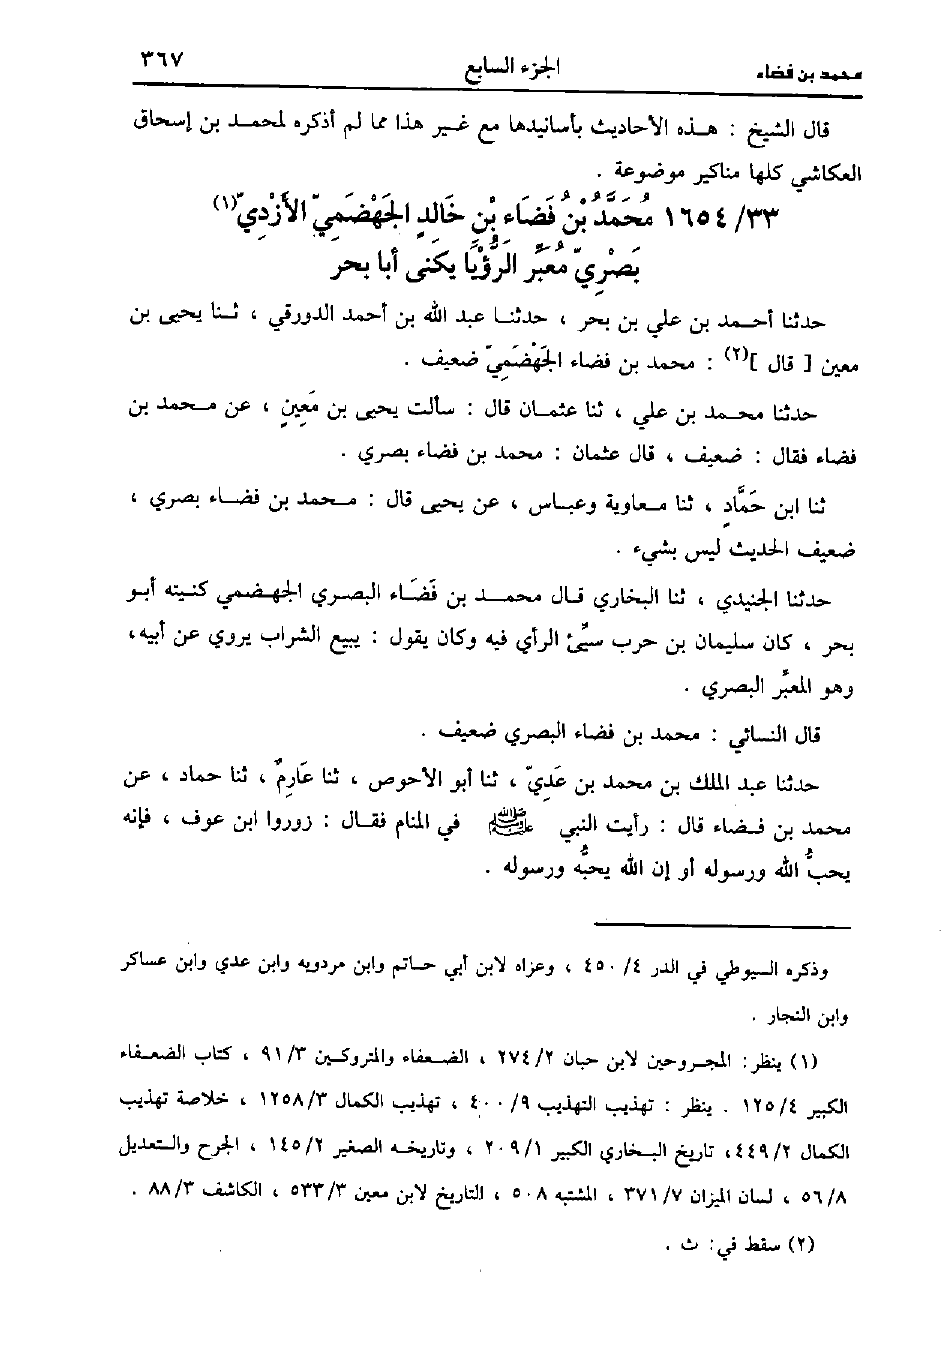 محمد بن فضاء الجزء السابع ٣٦٧
قال الشيخ : هذه الأحاديث بأسانيدها مع غير هذا مما لم أذكره لمحمد بن إسحاق
العكاشي كلها مناكير موضوعة .
٣٣/ ١٦٥٤ مُحَمَّدُ بْنُ فَضَاء بْنِ خَالِدٍ الجَهْضَمِيّ الأَزْدِيّ(١)
بَصْرِيّ مُعَبِّر الرُّؤْيَا يكَنى أبا بحر
حدثنا أحمد بن علي بن بحر ، حدثنا عبد الله بن أحمد الدورقي ، ثنا يحيى بن
معين [ قال ](٢) : محمد بن فضاء الجَهْضَمِيّ ضعيف .
حدثنا محمد بن علي ، ثنا عثمان قال : سألت يحيى بن مَعِينٍ ، عن محمد بن
فضاء فقال : ضعيف ، قال عثمان : محمد بن فضاء بصري .
ثنا ابن حَمَّادٍ ، ثنا معاوية وعباس ، عن يحيى قال : محمد بن فضاء بصري ،
ضعيف الحديث ليس بشيء .
حدثنا الجنيدي ، ثنا البخاري قال محمد بن فَضَاء البصري الجهضمي كنيته أبو
بحر ، كان سليمان بن حرب سيِّئ الرأي فيه وكان يقول : يبيع الشراب يروي عن أبيه،
وهو المعبِّر البصري .
قال النسائي : محمد بن فضاء البصري ضعيف .
حدثنا عبد الملك بن محمد بن عَدِيّ ، ثنا أبو الأحوص ، ثنا عَارِمٌ ، ثنا حماد ، عن
محمد بن فضاء قال : رأيت النبي ﷺ في المنام فقال : زوروا ابن عوف ، فإنه
يحبُّ الله ورسوله أو إن الله يحبُّه ورسوله .
وذكره السيوطي في الدر ٤/ ٤٥٠ ، وعزاه لابن أبي حاتم وابن مردويه وابن عدي وابن عساكر
وابن النجار .
(١) ينظر: المجروحين لابن حبان ٢/ ٢٧٤ ، الضعفاء والمتروكين ٣/ ٩١ ، كتاب الضعفاء
الكبير ٤/ ١٢٥ . ينظر : تهذيب التهذيب ٩/ ٤٠٠ ، تهذيب الكمال ٣/ ١٢٥٨ ، خلاصة تهذيب
الكمال ٢/ ٤٤٩، تاريخ البخاري الكبير ١/ ٢٠٩ ، وتاريخه الصغير ٢/ ١٤٥ ، الجرح والتعديل
٨/ ٥٦ ، لسان الميزان ٧/ ٣٧١ ، المشتبه ٥٠٨ ، التاريخ لابن معين ٣/ ٥٣٣ ، الكاشف ٣/ ٨٨ .
(٢) سقط في: ث .